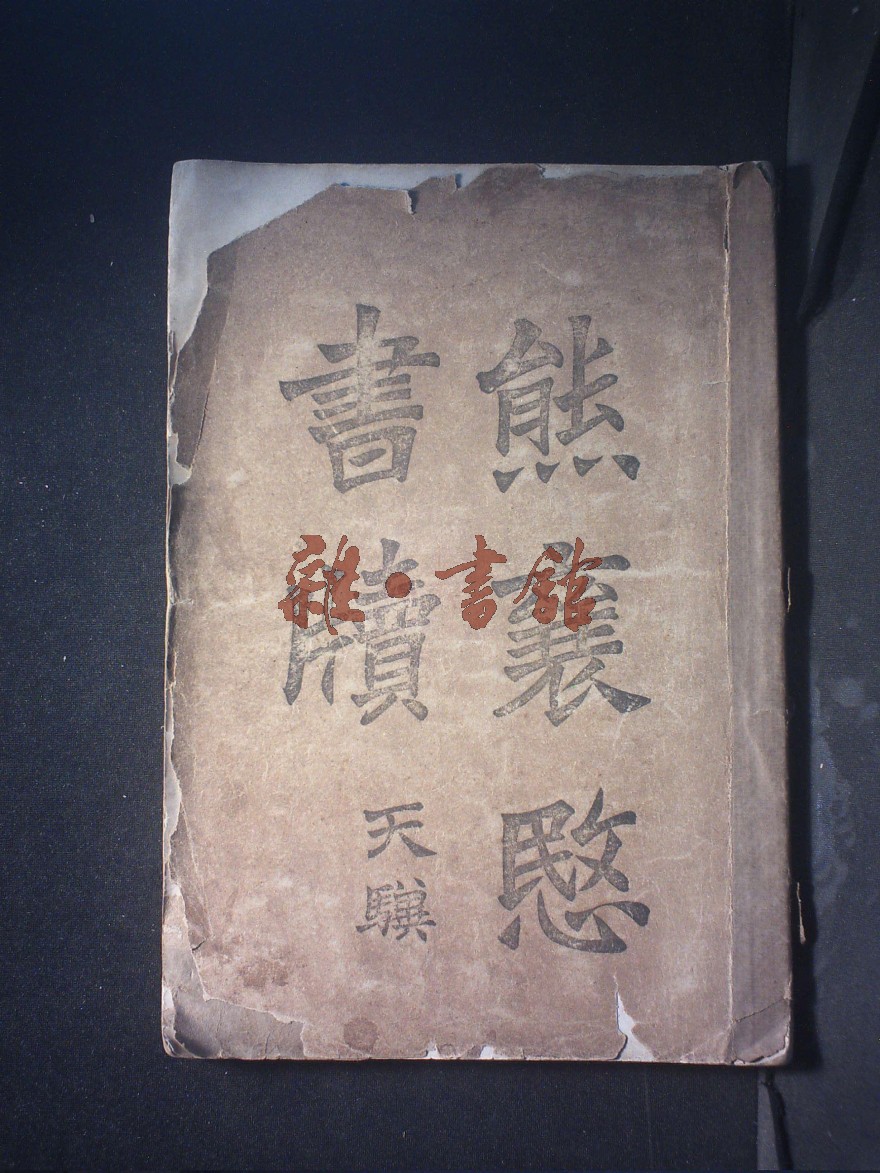 熊襄愍
書牘
天驥
雜·書館